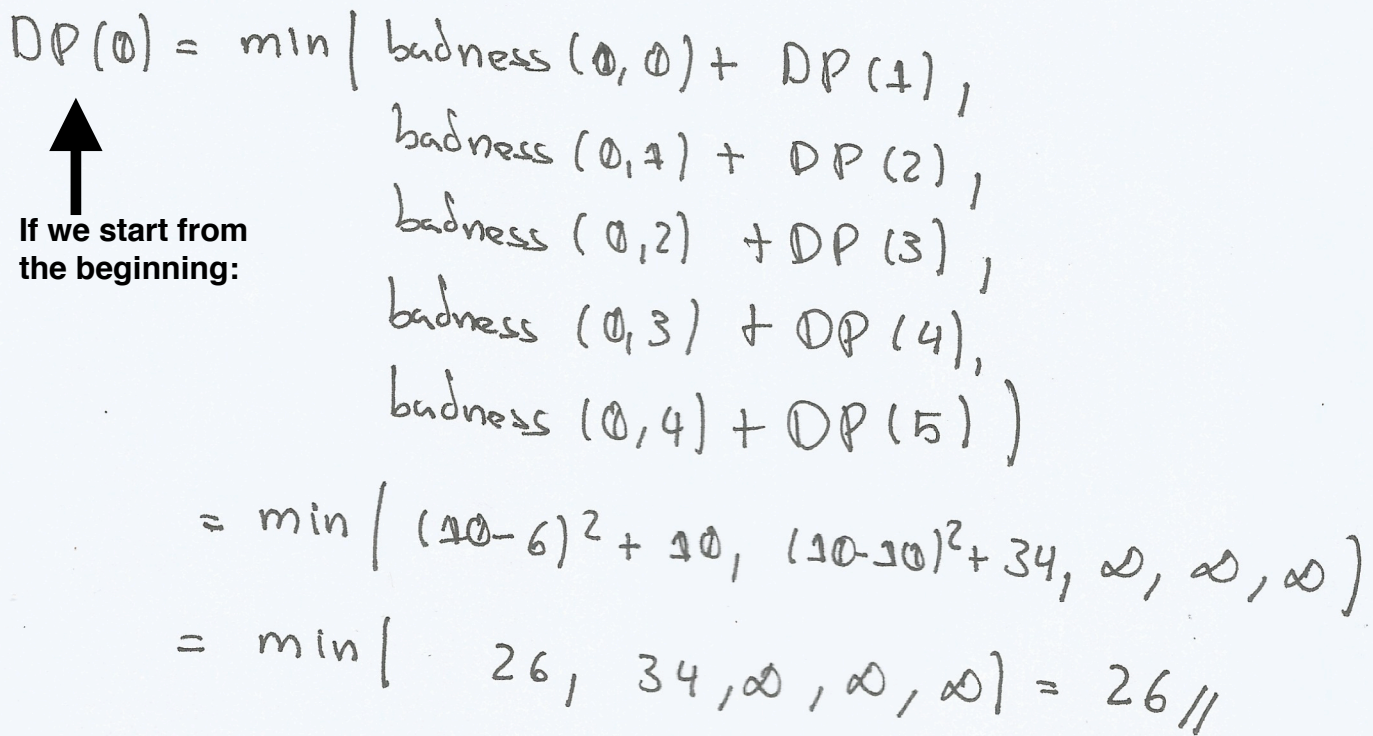 DP(0) = min( badness (0,0) + DP(1),
badness (0,1) + DP(2),
badness (0,2) + DP(3),
badness (0,3) + DP(4),
badness (0,4) + DP(5))
If we start from
the beginning:
= min( (10-6)² + 10, (10-10)² + 34, ∞, ∞, ∞)
= min( 26, 34, ∞, ∞, ∞) = 26 //